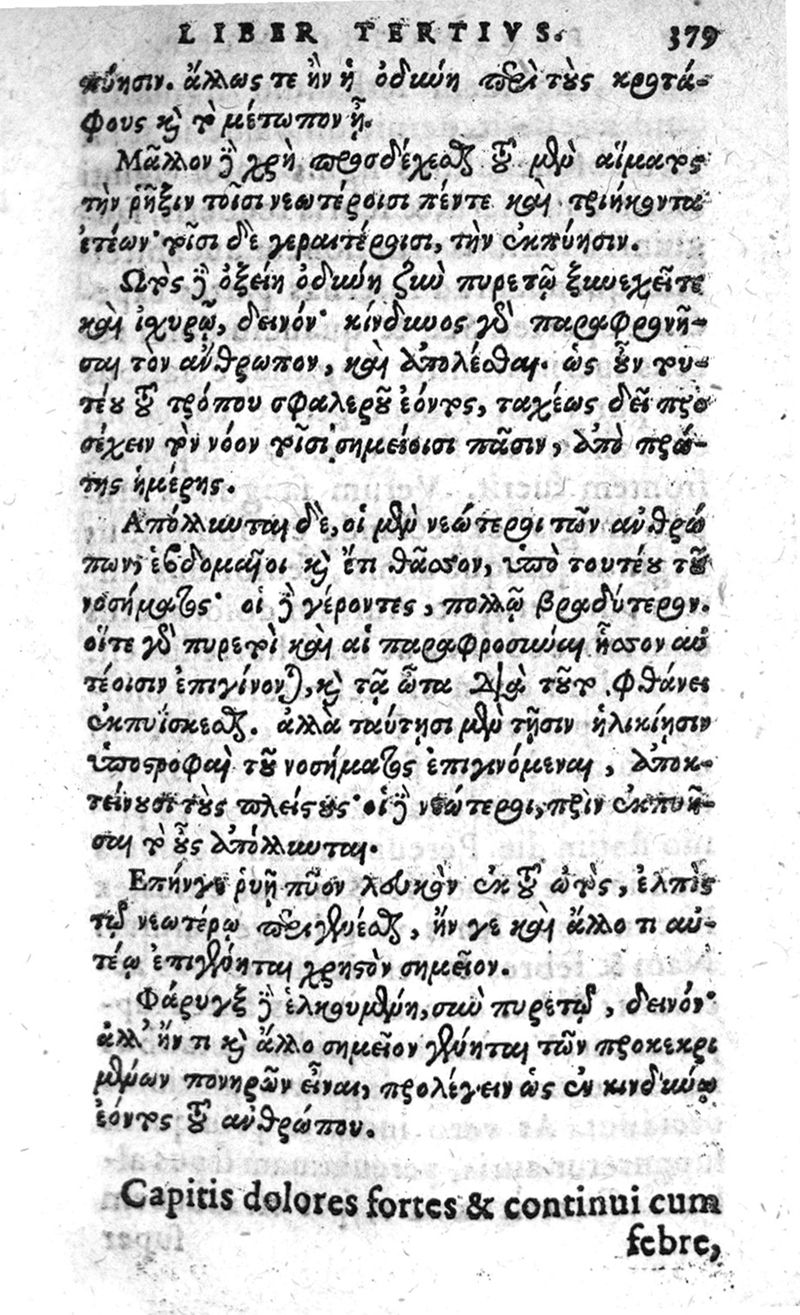 LIBER TERTIVS. 379
πύησιν. ἄλλως τε ἢν ἡ ὀδύνη περὶ τοὺς κροτά-
φους καὶ τὸ μέτωπον ᾖ.
Μᾶλλον δὲ χρὴ προσδέχεσθαι τοῦ μὲν αἵματος
τὴν ῥῆξιν τοῖσι νεωτέροισι πέντε καὶ τριήκοντα
ἐτέων· τοῖσι δὲ γεραιτέροισι, τὴν ἐκπύησιν.
Ωτὸς δὲ ὀξείη ὀδύνη ξὺν πυρετῷ ξυνεχεῖτε
καὶ ἰχυρῷ, δεινόν· κίνδυνος γὰρ παραφρονῆ-
σαι τὸν ἄνθρωπον, καὶ ἀπολέσθαι. ὡς οὖν του-
τέου τοῦ τρόπου σφαλεροῦ ἐόντος, ταχέως δεῖ προ
σέχειν τὸν νόον τοῖσι σημείοισι πᾶσιν, ἀπὸ πρώ-
της ἡμέρης.
Απόλλυνται δὲ, οἱ μὲν νεώτεροι τῶν ἀνθρώ
πων, ἑβδομαῖοι καὶ ἔτι θᾶσσον, ὑπὸ τουτέου τοῦ
νοσήματος· οἱ δὲ γέροντες, πολλῷ βραδύτερον.
οἵτε γὰρ πυρετοὶ καὶ αἱ παραφροσύναι ἧσσον αὐ
τέοισιν ἐπιγίνονται, καὶ τὰ ὦτα διὰ τοῦτο φθάνει
ἐκπυΐσκεσθαι. ἀλλὰ ταύτῃσι μὲν τῇσιν ἡλικίῃσιν
ὑποστροφαὶ τοῦ νοσήματος ἐπιγινόμεναι, ἀποκ-
τείνουσι τοὺς πλείστους· οἱ δὲ νεώτεροι, πρὶν ἐκπυῆ-
σαι τὸ οὖς ἀπόλλυνται.
Επήνγε ῥυῇ πῦον λευκὸν ἐκ τοῦ ὠτὸς, ἐλπὶς
τῷ νεωτέρῳ περιγενέσθαι, ἤν γε καὶ ἄλλο τι αὐ-
τέῳ ἐπιγένηται χρηστὸν σημεῖον.
Φάρυγξ δὲ ἑλκουμένη, σὺν πυρετῷ, δεινόν·
ἀλλ' ἤν τι καὶ ἄλλο σημεῖον γένηται τῶν προκεκρι
μένων πονηρῶν εἶναι, προλέγειν ὡς ἐν κινδύνῳ
ἐόντος τοῦ ἀνθρώπου.
Capitis dolores fortes & continui cum
febre,